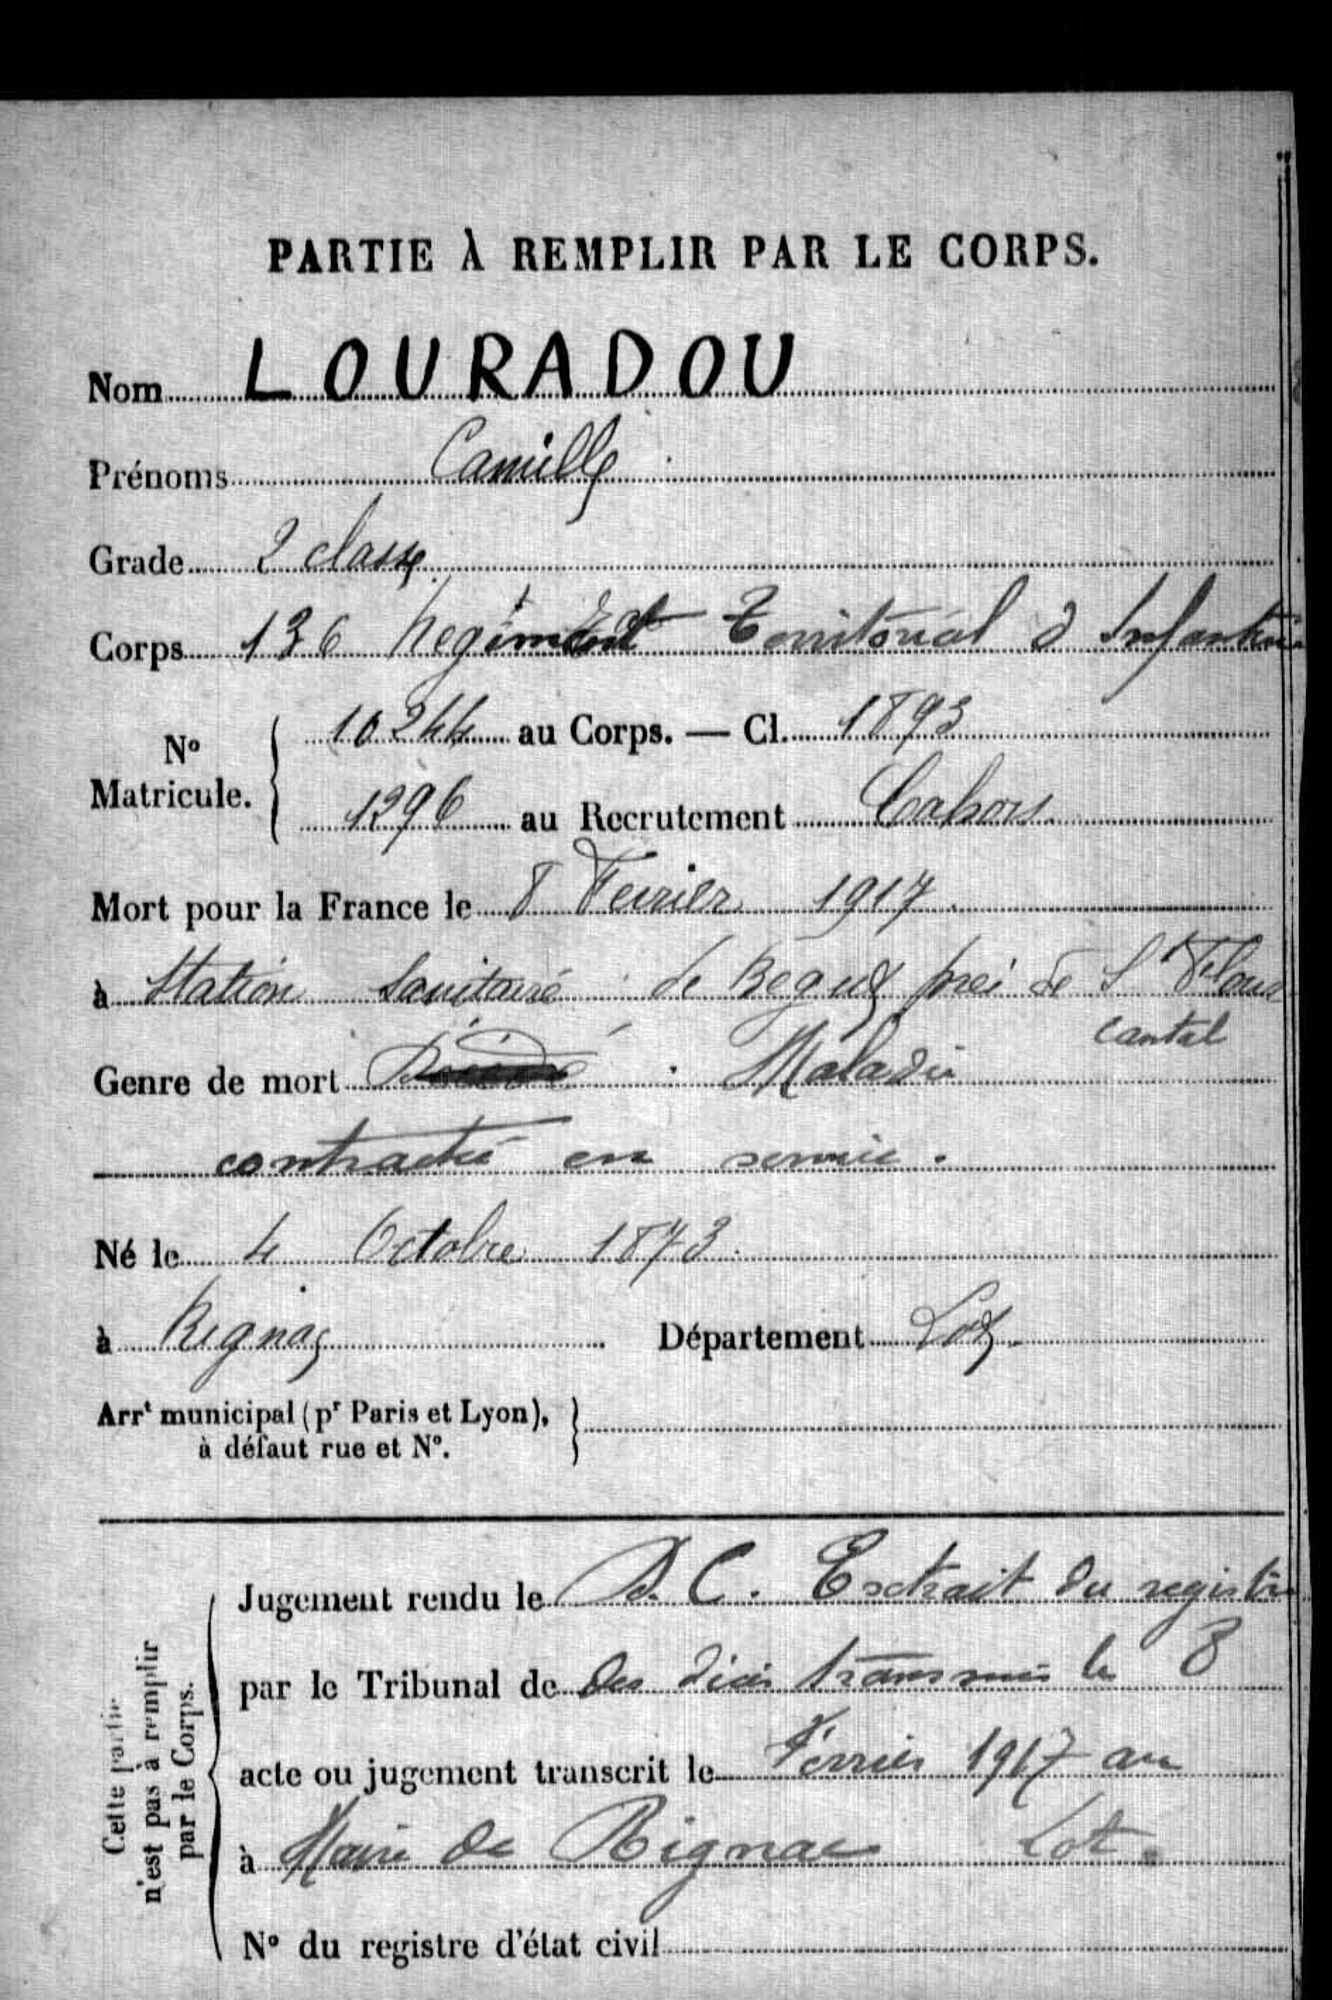 PARTIE À REMPLIR PAR LE CORPS.
Nom LOURADOU
Prénoms Camille
Grade 2 classe
Corps 136 Régiment Territorial d Infanterie
N° Matricule. 10244 au Corps. — Cl. 1893
1296 au Recrutement Cahors
Mort pour la France le 8 Fevrier 1917
à Station Sanitaire de près de St Flour
Cantal
Genre de mort Maladie
contractée en service.
Né le 4 Octobre 1873
à Rignac Département Lot.
Arrt municipal (pr Paris et Lyon),
à défaut rue et N°.
Cette partie
n'est pas à remplir
par le Corps.
Jugement rendu le D. C. Extrait du registre
par le Tribunal de des décès transmis le 8
acte ou jugement transcrit le Février 1917 au
à Maire de Rignac Lot.
N° du registre d'état civil